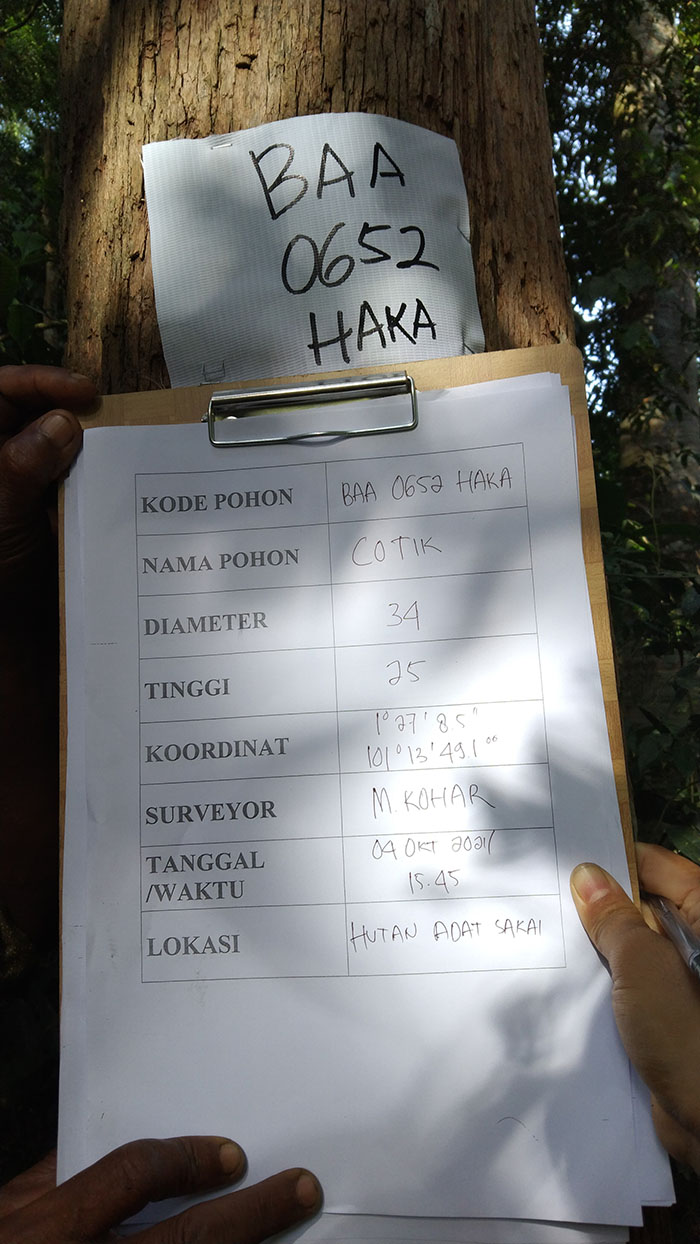 BAA
0652
HAKA
KODE POHON BAA 0652 HAKA
NAMA POHON COTIK
DIAMETER 34
TINGGI 25
KOORDINAT 1° 27' 8.5"
101° 13' 49.1 °°
SURVEYOR M. KOHAR
TANGGAL /WAKTU 04 OKT 2021/
15.45
LOKASI HUTAN ADAT SAKAI